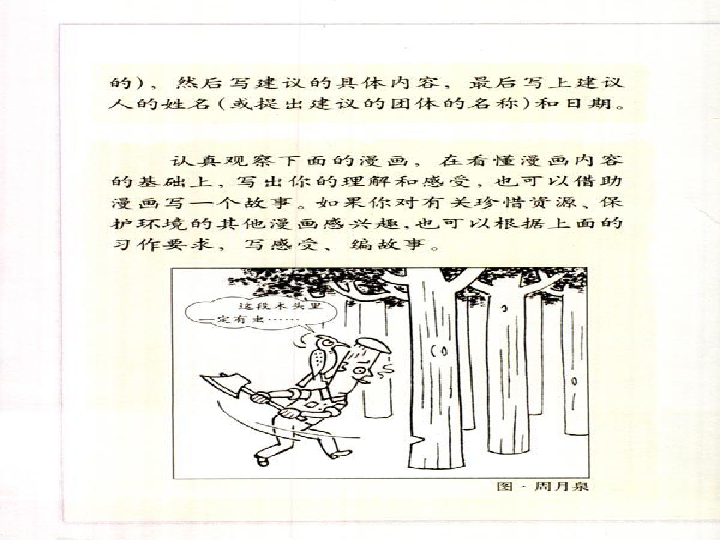 的)，然后写建议的具体内容，最后写上建议
人的姓名(或提出建议的团体的名称)和日期。
认真观察下面的漫画，在看懂漫画内容
的基础上，写出你的理解和感受，也可以借助
漫画写一个故事。如果你对有关珍惜资源、保
护环境的其他漫画感兴趣，也可以根据上面的
习作要求，写感受、编故事。
这段木头里
一定有虫……
图·周月泉